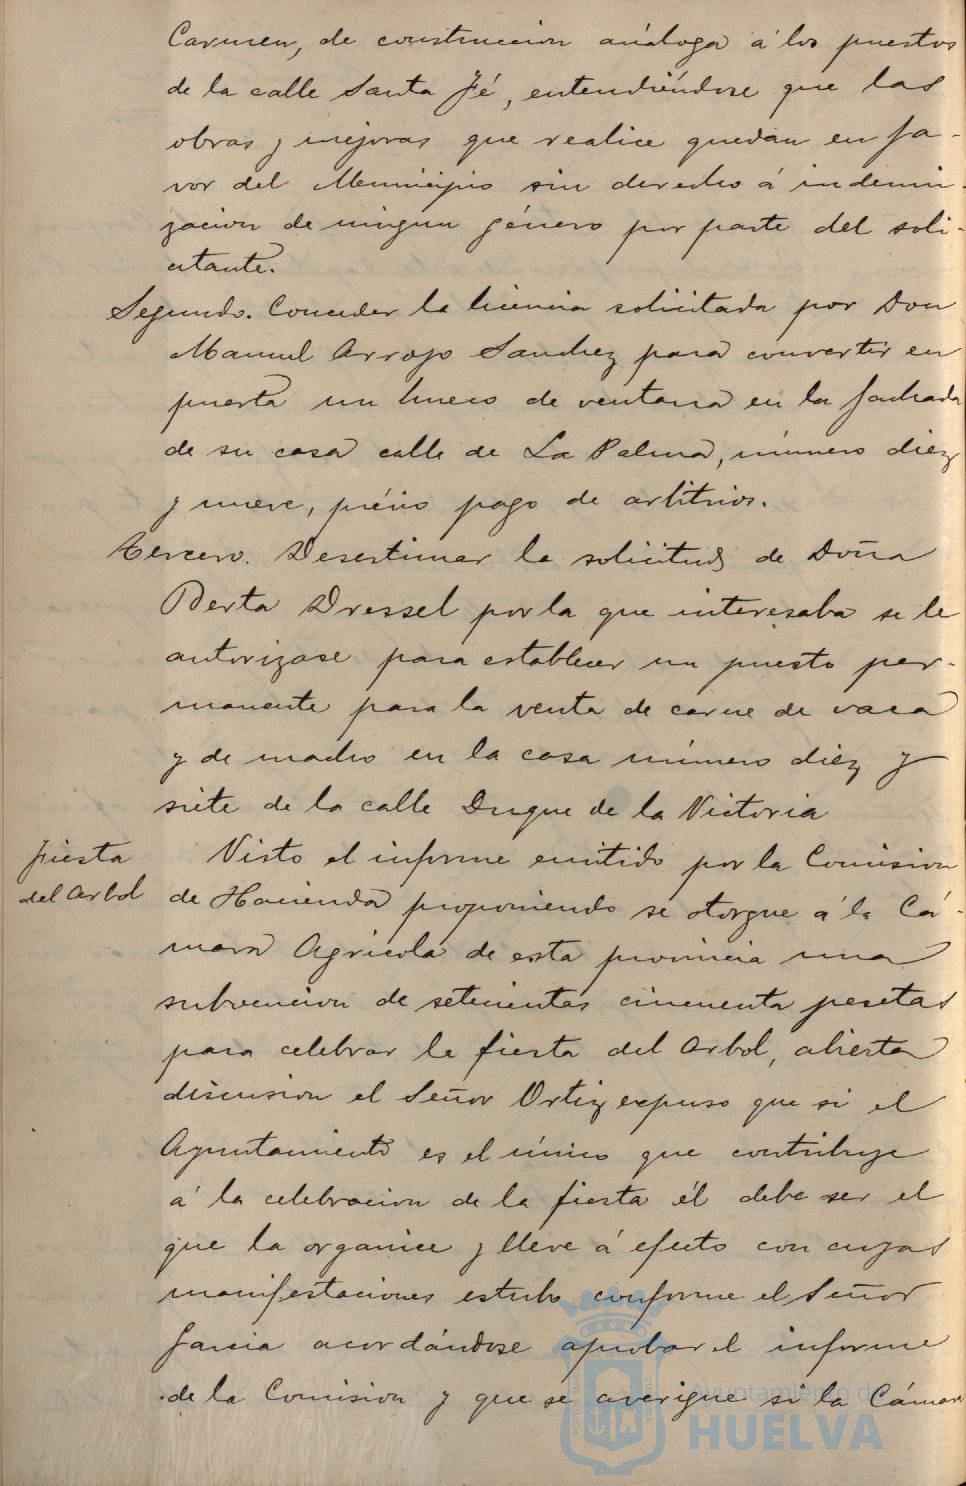 Carmen, de construccion análoga á los puestos
de la calle Santa Fé, entendiéndose que las
obras y mejoras que realice quedan en fa-
vor del Municipio sin derecho á indemni-
zacion de ningun género por parte del soli-
citante.
Segundo. Conceder la licencia solicitada por Don
Manuel Arroyo Sanchez para convertir en
puerta un hueco de ventana en la fachada
de su casa calle de La Palma, número diez
y nueve, prévio pago de arbitrios.
Tercero. Desestimar la solicitud de Doña
Berta Dressel por la que interesaba se le
autorizase para establecer un puesto per-
manente para la venta de carne de vaca
y de macho en la casa número diez y
siete de la calle Duque de la Victoria
Fiesta
del Arbol
Visto el informe emitido por la Comision
de Hacienda proponiendo se otorgue á la Cá-
mara Agricola de esta provincia una
subvencion de setecientas cincuenta pesetas
para celebrar la fiesta del Arbol, abierta
discusion el Señor Ortiz expuso que si el
Ayuntamiento es el único que contribuye
á la celebracion de la fiesta él debe ser el
que la organice y lleve á efecto con cuyas
manifestaciones estubo conforme el Señor
Garcia acordándose aprobar el informe
de la Comision y que se averigue si la Cámara
Ayuntamiento de
HUELVA